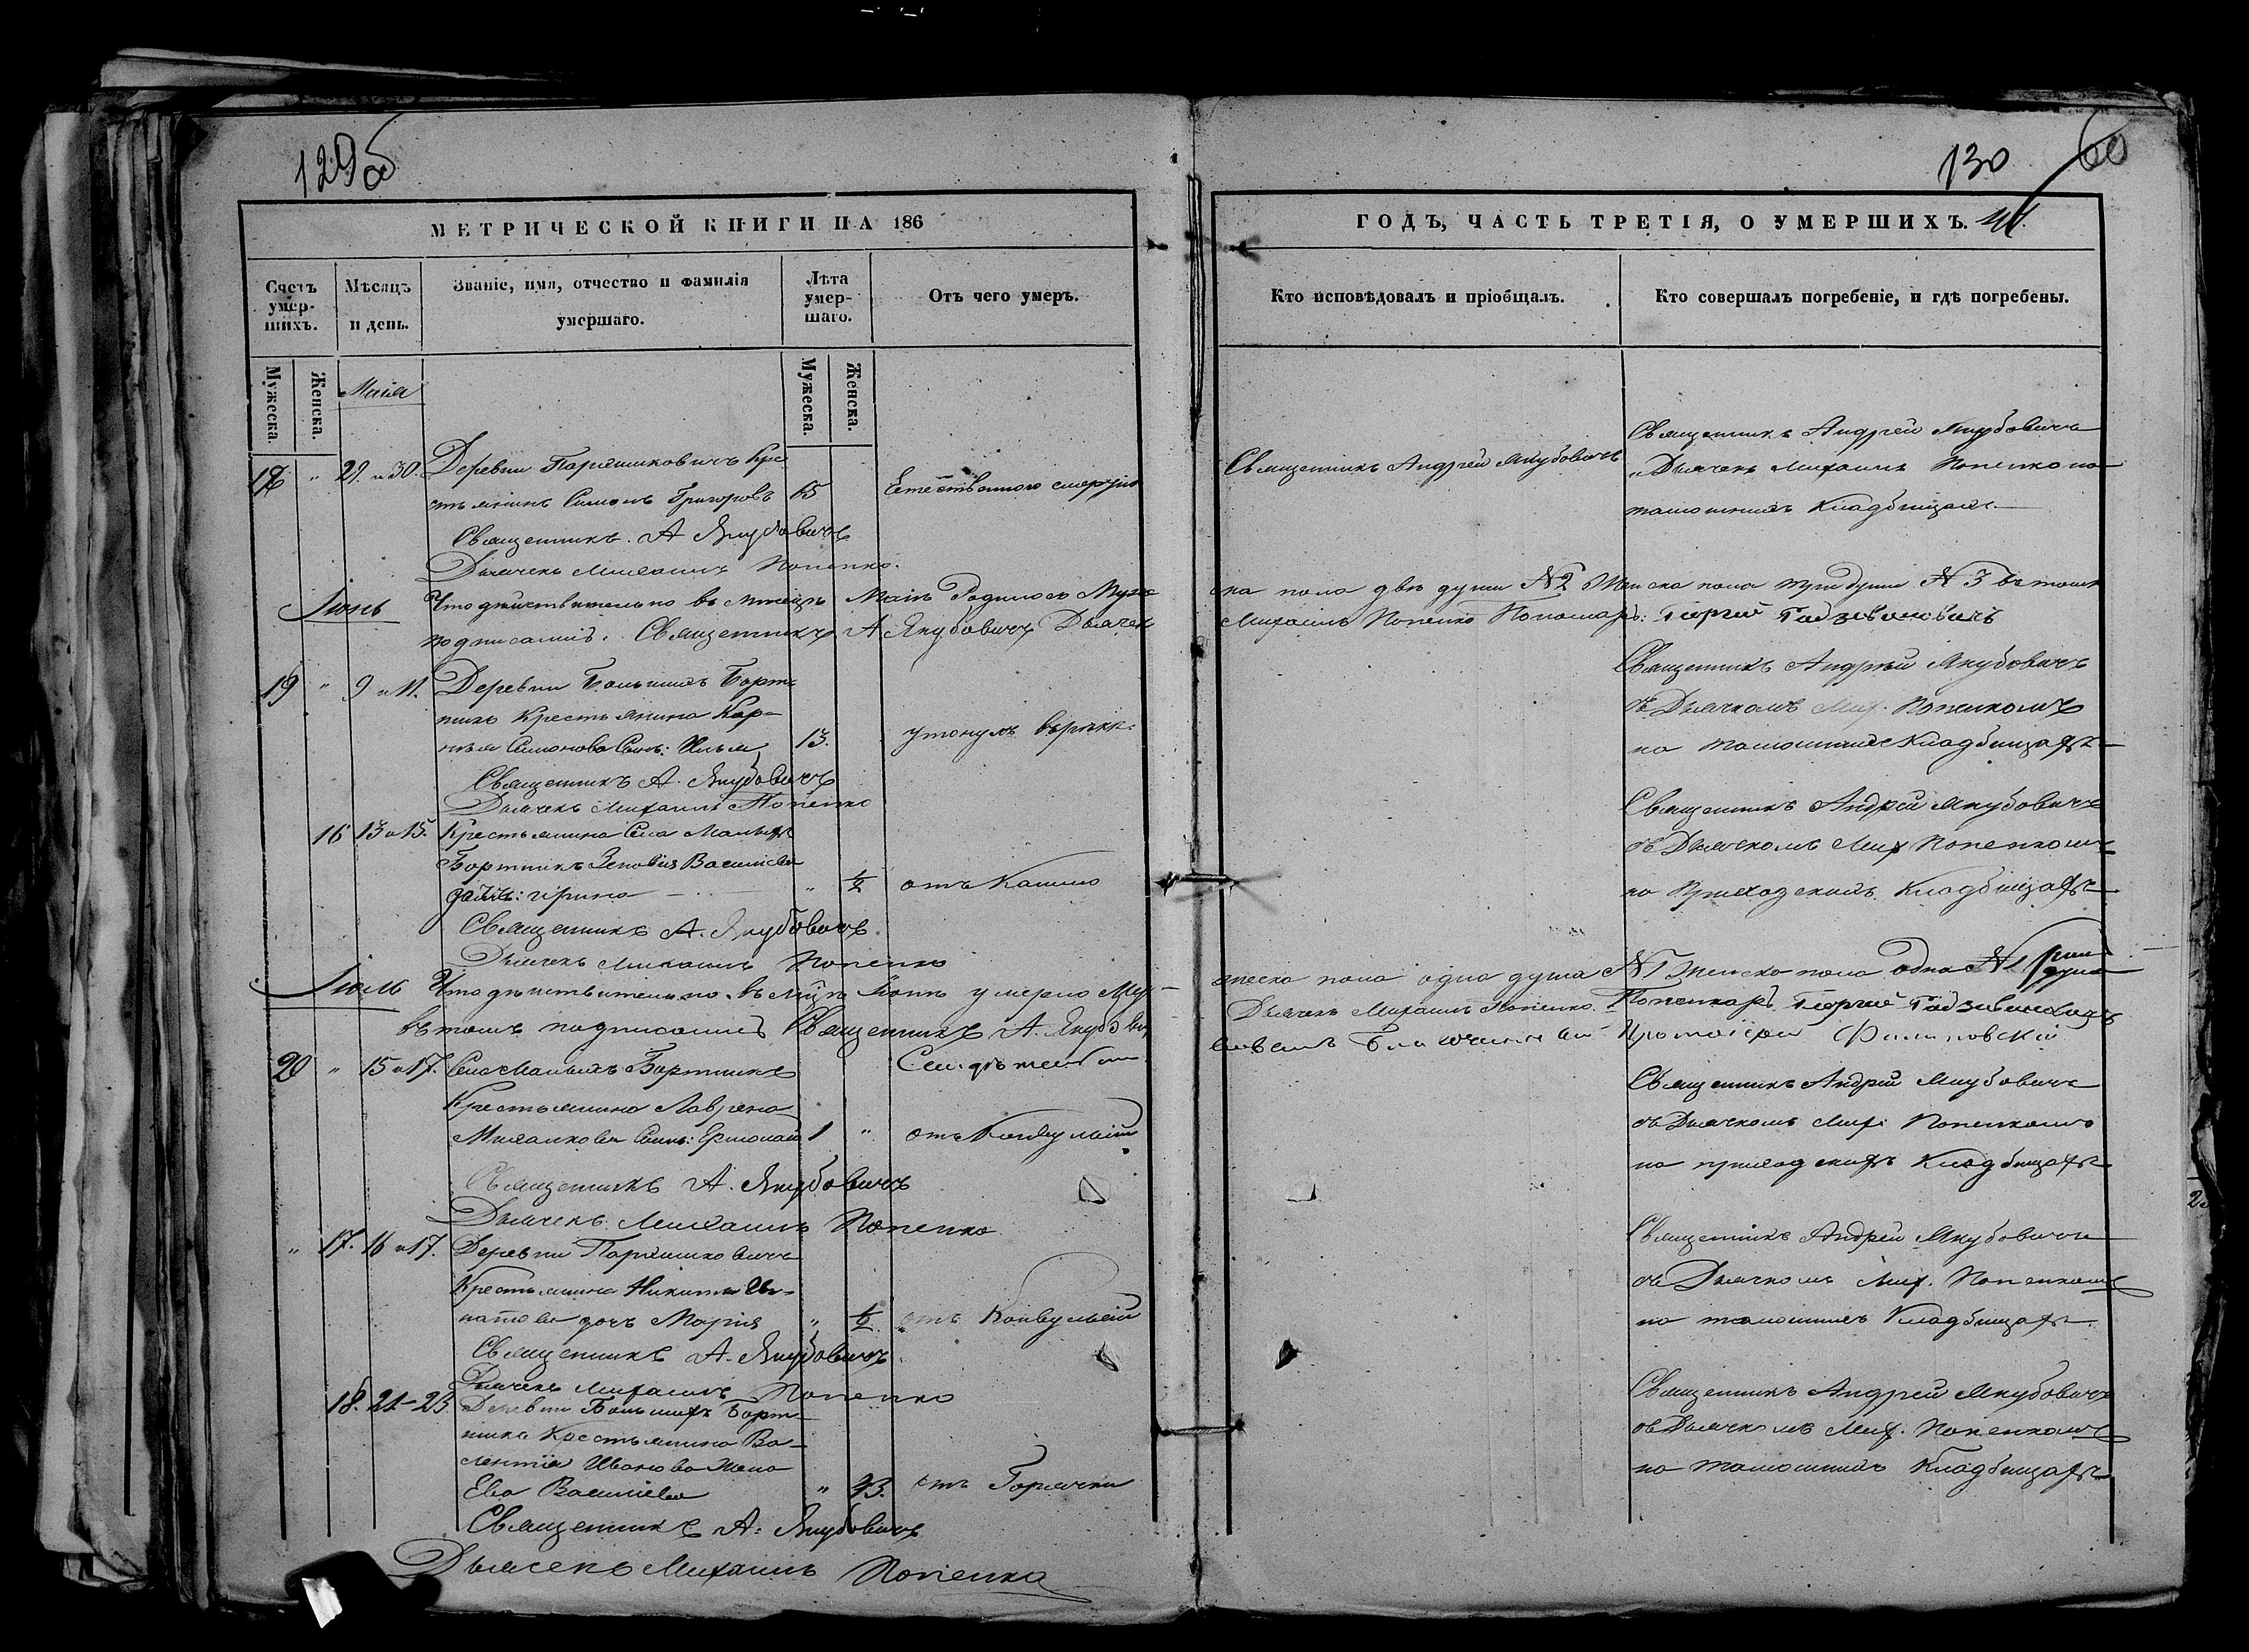 129об
МЕТРИЧЕСКОЙ КНИГИ НА 186
Счетъ умер-шихъ.
Мѣсяцъ и день.
Званіе, имя, отчество и фамилія умершаго.
Лѣта умер-шаго.
Отъ чего умеръ.
Мужеска.
Женска.
Мужеска.
Женска.
Маія
18 " 29 и 30. Деревни Паришиковичъ Кре
стьянинъ Симонъ Григоровъ 65 Естественною смертію
Священникъ А Якубовичъ
Дьячекъ Михаилъ Попенко.
Іюнь Что дѣйствительно въ мѣсяцѣ Маіи Родилось Муже
подписаміъ. Священникъ А Якубовичъ Дьячек
19 " 9 и 11. Деревни Большихъ Борт-
никъ Крестьянина Кор-
нѣя Симонова Сынъ: Илья 13. утонулъ въ рѣкѣ.
Священникъ А. Якубовичъ
Дьячекъ Михаилъ Попенко
16 13 и 15. Крестьянина Села Малыхъ
Бортникъ Зеновія Василіева
дочь: Ирина " 1/2 отъ Кашлю
Священникъ А. Якубовичъ
Дьячекъ Михаилъ Попенко
Іюль Что дѣйствительно въ мѣсяцѣ Іюнѣ умерло Му
въ томъ подписаміъ Священникъ А. Якубови
20 " 15 и 17. Села Малыхъ Бортникъ
Крестьянина Лаврена
Михалкова Сынъ: Ермолай 1 " отъ Конвульсіи
Священникъ А. Якубовичъ
Дьячекъ Михаилъ Попенко
" 17. 16 и 17. Деревни Паришиковичъ
Крестьянина Никиты Иг-
натова дочь Марія " 1/2 отъ Конвульсіи
Священникъ А. Якубовичъ
Дьячекъ Михаилъ Попенко
18. 21-23 Деревни Большихъ Борт-
никъ Крестьянина Ва-
лентія Иванова Жена
Ева Василіева " 43. отъ Горячки
Священникъ А. Якубовичъ
Дьячекъ Михаилъ Попенко
130 60
ГОДЪ, ЧАСТЬ ТРЕТІЯ, О УМЕРШИХЪ.
Кто исповѣдовалъ и пріобщалъ.
Кто совершалъ погребеніе, и гдѣ погребены.
Священникъ Андрей Якубовичъ
Священникъ Андрей Якубовичъ
и Дьячекъ Михаилъ Попенко на
тамошнихъ Кладбищахъ
ска пола двѣ души №2 Женска пола три души №3 въ томъ
Михаилъ Попенко Пономарь: Георгій Гадзевановичъ
Священникъ Андрей Якубовичъ
съ Дьячкомъ Мих. Попенкомъ
на тамошнихъ Кладбищахъ
Священникъ Андрей Якубовичъ
съ Дьячкомъ Мих Попенкомъ
на Приходскихъ Кладбищахъ
жеска пола одна душа №1 Женска пола одна №1 душа
Дьячекъ Михаилъ Попенко. Пономарь Георгій
Благочинный Протоіерей
Священникъ Андрей Якубовичъ
съ Дьячкомъ Мих: Попенкомъ
на приходскихъ Кладбищахъ
Священникъ Андрей Якубовичъ
съ Дьячкомъ Мих. Попенкомъ
на тамошнихъ Кладбищахъ.
Священникъ Андрей Якубовичъ
съ Дьячкомъ Мих. Попенкомъ
на тамошнихъ Кладбищахъ